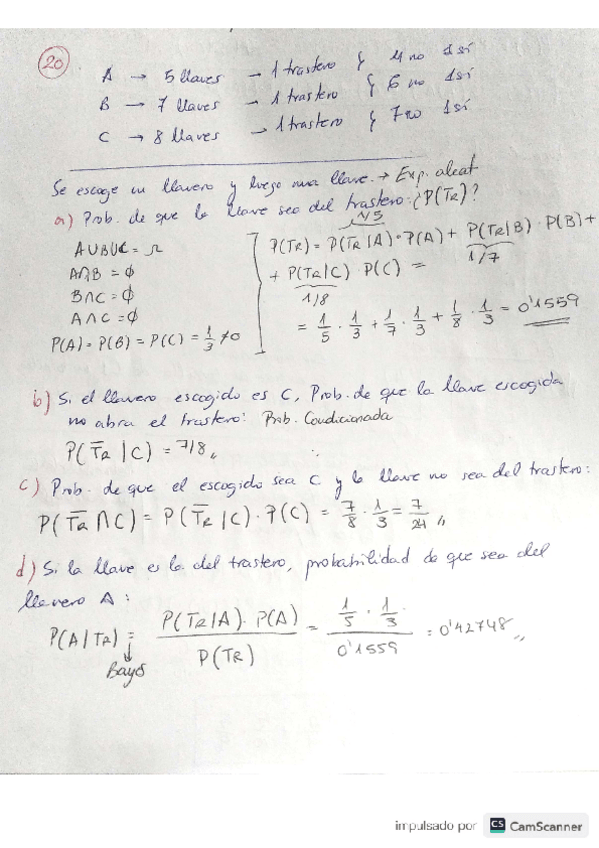 20
A → 5 llaves → 1 trastero { 4 no 1 sí
B → 7 llaves → 1 trastero { 6 no 1 sí
C → 8 llaves → 1 trastero { 7 no 1 sí
Se escoge un llavero y luego una llave. → Exp. aleat
a) Prob. de que la llave sea del trastero: ¿P(TR)?
AUBUC = Ω
A∩B = ϕ
B∩C = ϕ
A∩C = ϕ
P(A) = P(B) = P(C) = 1/3 ≠ 0
1/5
P(TR) = P(TR|A) · P(A) + P(TR|B) · P(B) +
1/7
+ P(TR|C) · P(C) =
1/8
= 1/5 · 1/3 + 1/7 · 1/3 + 1/8 · 1/3 = 0'1559
b) Si el llavero escogido es C, Prob. de que la llave escogida
no abra el trastero: Prob. Condicionada
P(T̅R̅ | C) = 7/8 ,,
c) Prob. de que el escogido sea C y la llave no sea del trastero:
P(T̅R̅ ∩ C) = P(T̅R̅ | C) · P(C) = 7/8 · 1/3 = 7/24 ,,
d) Si la llave es la del trastero, probabilidad de que sea del
llavero A:
P(A|TR) = P(TR|A) · P(A) / P(TR) = 1/5 · 1/3 / 0'1559 = 0'42748 ,,
↓
Bayes
impulsado por CS CamScanner